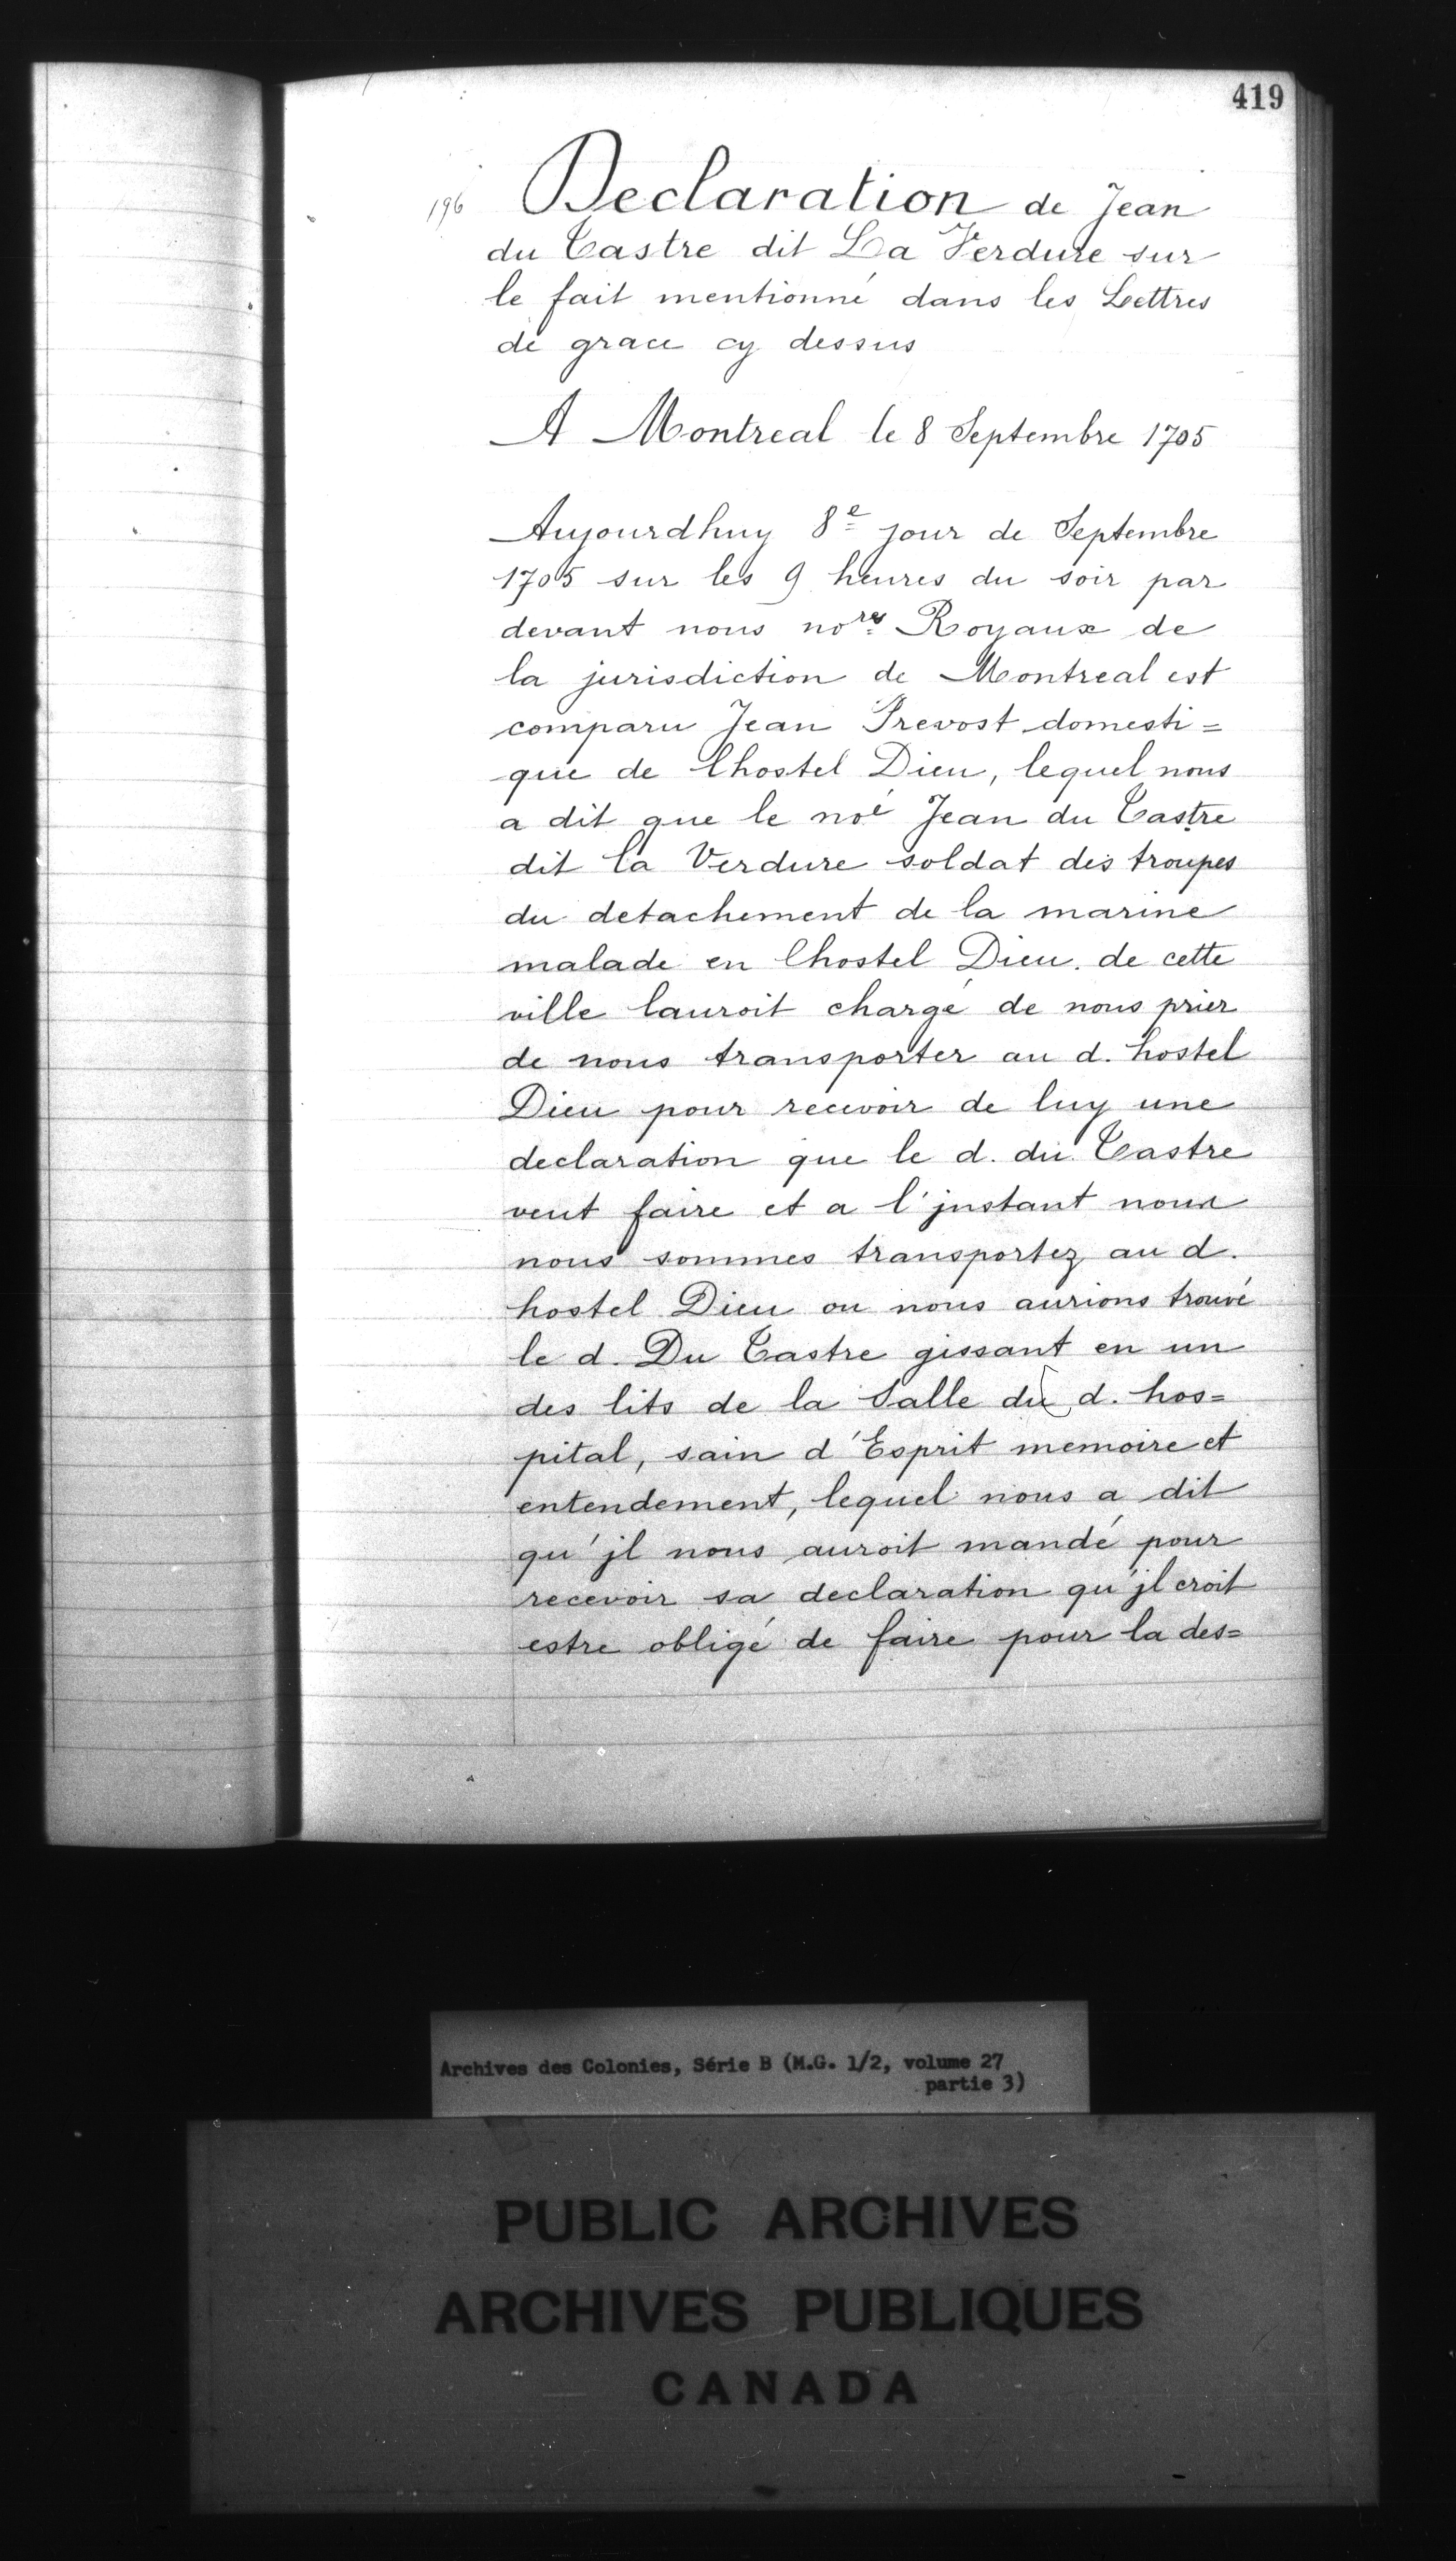 419
196
Declaration de Jean
du Castre dit La Verdure sur
le fait mentionné dans les Lettres
de grace cy dessus
A Montreal le 8 Septembre 1705
Aujourdhuy 8e jour de Septembre
1705 sur les 9 heures du soir par
devant nous nores Royaux de
la jurisdiction de Montreal est
comparu Jean Prevost domesti=
que de lhostel Dieu, lequel nous
a dit que le noé Jean du Castre
dit la Verdure soldat des troupes
du detachement de la marine
malade en lhostel Dieu de cette
ville lauroit chargé de nous prier
de nous transporter au d. hostel
Dieu pour recevoir de luy une
declaration que le d. du Castre
veut faire et a l'jnstant nous
nous sommes transportez au d.
hostel Dieu ou nous aurions trouvé
le d. Du Castre gissant en un
des lits de la Salle du d. hos=
pital, sain d'Esprit memoire et
entendement, lequel nous a dit
qu'jl nous auroit mandé pour
recevoir sa declaration qu'jl croit
estre obligé de faire pour la des=
Archives des Colonies, Série B (M.G. 1/2, volume 27
partie 3)
PUBLIC ARCHIVES
ARCHIVES PUBLIQUES
CANADA